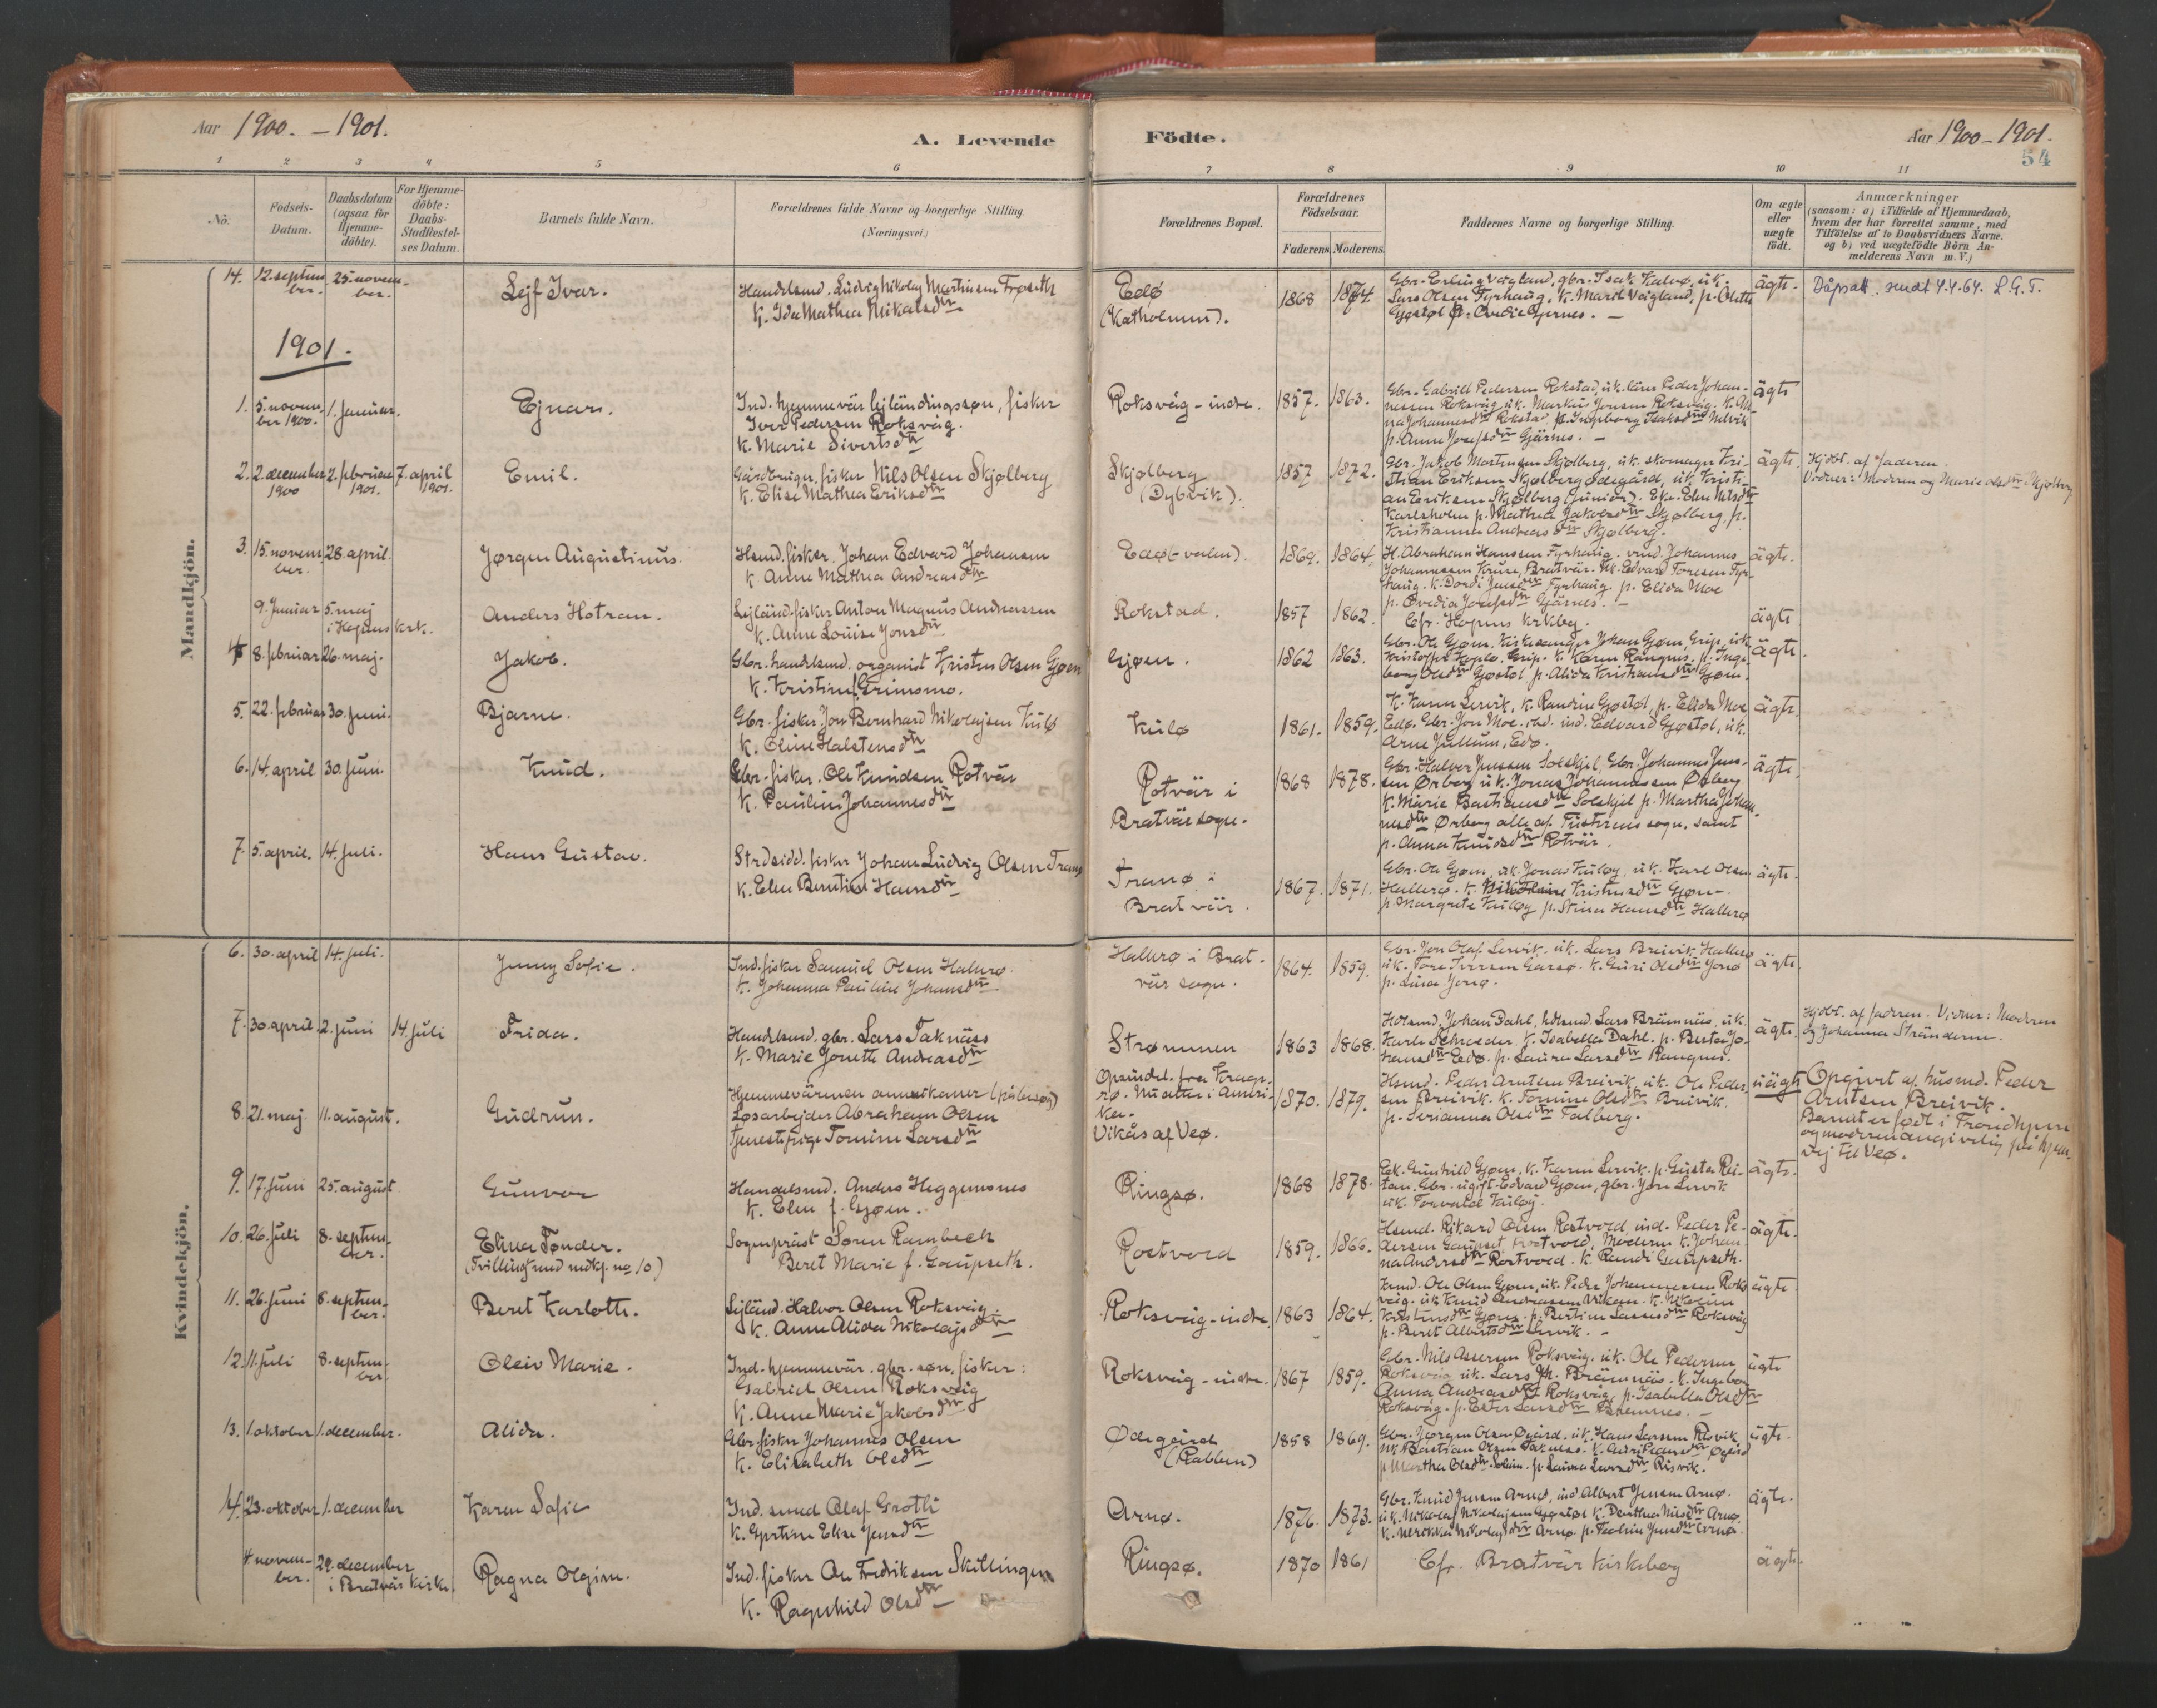 Aar 1900. – 1901.
A. Levende Födte.
Aar 1900 – 1901.
54
1 2 3 4 5 6 7 8 9 10 11
Nö.
Födsels-Datum.
Daabsdatum (ogsaa for Hjemme-döbte).
For Hjemme-döbte: Daabs-Stadfæstel-ses Datum.
Barnets fulde Navn.
Forældrenes fulde Navne og borgerlige Stilling. (Næringsvei.)
Forældrenes Bopæl.
Forældrenes Födselsaar.
Faderens. Moderens.
Faddernes Navne og borgerlige Stilling.
Om ægte eller uægte födt.
Anmærkninger
(saasom: a) i Tilfælde af Hjemmedaab,
hvem der har forrettet samme, med
Tilföielse af to Daabsvidners Navne.
og b) ved uægtefödte Börn An-
melderens Navn m.V.)
Mandkjön.
14. 12. septem- 25. novem-
ber. ber.
Lejf Ivar.
Handelsmd. Ludvig Nikolaj Martinsen Frøseth
K. Ida Mathea Nikolsdtr
Edø
(Katholmen).
1868 1874.
Gbr. Erling Veigland, gbr. Isak Kalvø, uk.
Lars Olsen Fyrhaug, k. Marit Veigland, p. Olette
Gjøstøl p. Ovedie Gjernes. –
ägte.
Dåpsatt. sendt 4.4.64. L.G.T.
1901.
1. 5. novem- 1. januar.
ber 1900.
Ejnar.
Ind. hjemmevär lejländingssøn, fisker
Iver Pedersen Roksvåg.
K. Marie Sivertsdtr
Roksvåg – indre.
1857. 1863.
Gbr. Gabriel Pedersen Rokstad, uk. lärer Peder Johan-
nessen Roksvåg uk. Markus Jonsen Roksvåg. k. An-
na Johannesdtr Rokstad p. Ingeborg Isaksdtr
p. Anne Josefsdtr Gjärnes. –
ägte
2. 2. december 2. februar 7. april
1900 1901. 1901.
Emil.
Gårdbruger, fisker Nils Olsen Skjølberg
K. Elise Mathea Eriksdtr
Skjølberg
(Dybvik).
1857 1872.
Gbr. Jakob Martinsen Skjølberg, uk. skomager Kri-
stian Eriksen Skjølberg Ødegård, uk. Kristi-
an Eriksen Skjølberg (junior). Eke. Elen Nilsdtr
Karlsholm p. Mathea Jakobsdtr Skjølberg, p.
Kristianna Andreasdtr Skjølberg.
ägte.
Hjdbt. af faderen.
Vidner: Moderen og Marie Olsdtr Skjølberg
3. 15. novem- 28. april.
ber.
Jørgen Augustinus.
Hsmd. fisker. Johan Edvard Johansen
K. Anne Mathea Andreasdtr
Edø (-valen).
1869. 1864.
H. Abraham Hanssen Fyrhaug. vmd. Johannes
Johannessen Kruse, Bratvär. uk. Edvard Toresen Fyr-
haug. k. Dordi Jensdtr Fyrhaug. p. Elida Moe
p. Ovedia Josefsdtr Gjärnes. –
ägte.
9. januar 5. maj
i Hopens kirk.
Anders Hotran.
Lejländ. fisker Anton Magnus Andreassen
K. Anne Louise Jonsdtr
Rokstad.
1857 1862.
Cfr. Hopens kirkbog.
ägte
4. 8. februar 26. maj.
Jakob.
Gbr. handelsmd. organist Kristen Olsen Gjøen
K. Kristine f. Grimsmo.
Gjøen.
1862 1863.
Gbr. Ole Gjøen. Kirkesanger Johan Gjøen, Grip, uk.
Kristoffer Grip. k. Karen Rangnes. p. Inge-
borg Olsdtr Gjøstøl p. Alida Kristiansdtr Gjøen.
ägte.
5. 22. februar 30. juni.
Bjarne.
Gbr. fisker. Jon Bernhard Nikolajsen Kulø
K. Oline Halstensdtr
Kulø
1861. 1859.
K. Karen Lervik, k. Randine Gjøstøl, p. Elida Moe
Edø. Gbr. Jon Moe. ind. Edvard Gjøstøl, uk.
Arne Jullum, Edø.
ägte.
6. 14. april 30. juni.
Knud.
Gbr. fisker. Ole Knudsen Rotvär
K. Pauline Johannesdtr
Rotvär i
Bratvär sogn.
1868 1878.
Gbr. Halvor Jenssen Solskjel, Gbr. Johannes Jens-
sen Ørberg uk. Jonas Johannessen Ørberg
K. Marie Bastiansdtr Solskjel p. Martha Johan-
nesdtr Ørberg alle af Tustern sogn. samt
p. Anna Knudsdtr Rotvär.
ägte.
7. 5. april. 14. juli.
Hans Gustav.
Strdsidd. fisker Johan Ludvig Olsen Tranø
K. Elen Berntine Hansdtr
Tranø i
Bratvär.
1867. 1871.
Gbr. Ole Gjøen, uk. Jonas Kuløy, uk. Karl Olsen
Hallerø. k. Nikoline Kristensdtr Gjøen –
p. Margrete Kuløy p. Stina Hansdtr Hallerø
ägte.
Kvindekjön.
6. 30. april 14. juli.
Jenny Sofie.
Ind. fisker Samuel Olsen Hallerø.
K. Johanna Pauline Johansdtr.
Hallerø i Brat-
vär sogn.
1864. 1859.
Gbr. Jon Olaf Lervik. uk. Lars Breivik Hallerø
uk. Tore Iversen Garsø. k. Guri Olsdtr Jonø
p. Lina Jonø.
ägte.
7. 30. april. 2. juni 14. juli
Frida.
Handelsmd. gbr. Lars Taknäss
K. Marie Jonette Andreasdtr
Strømmen
1863 1868.
Hdlsmd. Johan Dahl, hdlsmd. Lars Brämnäs, uk.
Karl Schrøeder. k. Isabella Dahl. p. Berta Jo-
hansdtr Edø. p. Laura Larsdtr Rangnes.
ägte.
Hjdbt. af faderen. Vidner: Moderen
og Johanna Strånderen.
8. 21. maj 11. august.
Gudrun.
Hjemmevärenen amerikaner
Løsarbejder Abraham Olsen
Tjenestepige Tomine Larsdtr
Opsindel. fra Kragerø. Nu atter i Ameri-
ka.
Vikås af Veø.
1870. 1879.
Hsmd. Peder Arntsen Breivik, uk. Ole Peder-
sen Breivik. k. Tomine Olsdtr Breivik.
p. Serianna Olsdtr Talberg.
uägte
Opgivet af husmd. Peder
Arntsen Breivik.
Barnet er født i Trondhjem
og moderen angivelig på hjem-
vej til Veø.
9. 17. juni 25. august
Gunvor
Handelsmd. Anders Heggemsnes
K. Elen f. Gjøen.
Ringsø.
1868 1878.
Eek. Gunhild Gjøen, k. Karen Lervik. p. Gusta Rei-
tan, Gbr. ugift Edvard Gjøen, gbr. Jon Lervik
uk. Torvald Kuløy.
ägte.
10. 26. juli 8. septem-
ber.
Elina Tønder.
(Tvilling med mdkj. no 10)
Sogneprest Søren Rambech
Beret Marie f. Gaupseth.
Rostvold
1859. 1866.
Hsmd. Rikard Olsen Rostvold, ind. Peder Pe-
dersen Gaupset, Rostvold, Moderen k. Johan-
na Andersdtr Rostvold. k. Randi Gaupseth.
ägte.
11. 26. juni 8. septem-
ber.
Beret Karlotte.
Lejländ. Halvor Olsen Roksvåg.
K. Anne Alida Nikolajsdtr
Roksvåg – indre.
1863 1864.
Kmd. Ole Olsen Gjøen, uk. Peder Johannessen Roks-
våg. uk. Knud Andreassen Vikan. k. Nikoline
Kristensdtr Gjøen. p. Bertine Lassesdtr Roksvåg
p. Beret Albertsdtr Lervik. –
ägte.
12. 11. juli 8. septem-
ber.
Oleiv Marie.
Ind. hjemmevär. gbr. søn, fisker:
Gabriel Olsen Roksvåg
K. Anne Marie Jakobsdtr
Roksvåg – indre.
1867 1859.
Gbr. Nils Assersen Roksvåg, uk. Ole Pedersen
Roksvåg uk. Lars Joh. Brämnäs. k. Ingebor
Anna Andreasdtr Roksvåg. p. Isabella Olsdtr
Roksvåg. p. Ester Larsdtr Bremnes. –
ägte
13. 1. oktober 1. december.
Alida.
Gbr. fisker Johannes Olsen
K. Elisabeth Olsdtr
Ødegård
(Rabben)
1858 1869.
Gbr. Jørgen Olsen Øgård. uk. Hans Larsen Risvik
uk. Bastian Olsen Taknes. k. Øgård
p. Martha Olsdtr Solem. p. Laura Larsdtr Risvik.
ägte.
14. 23. oktober 1. december
Karen Sofie
Ind. smed Olaf Grotli
K. Gjertine Elise Jensdtr
Arnø.
1876. 1873.
Gbr. Knud Jensen Arnø, ind. Albert Jensen Arnø.
uk. Nikolaj Nikolajsen Gjøstøl k. Dorthea Nilsdtr Arnø.
k. Nerikka Nikolajsdtr Arnø. p. Paulina Jensdtr Arnø.
ägte.
4. novem- 29. december
ber. i Bratvär kirke.
Ragna Olgine.
Ind. fisker Ole Fredriksen Skillingen
K. Ragnhild Olsdtr
Ringsø.
1870 1861
Cfr. Bratvär kirkebog
ägte.